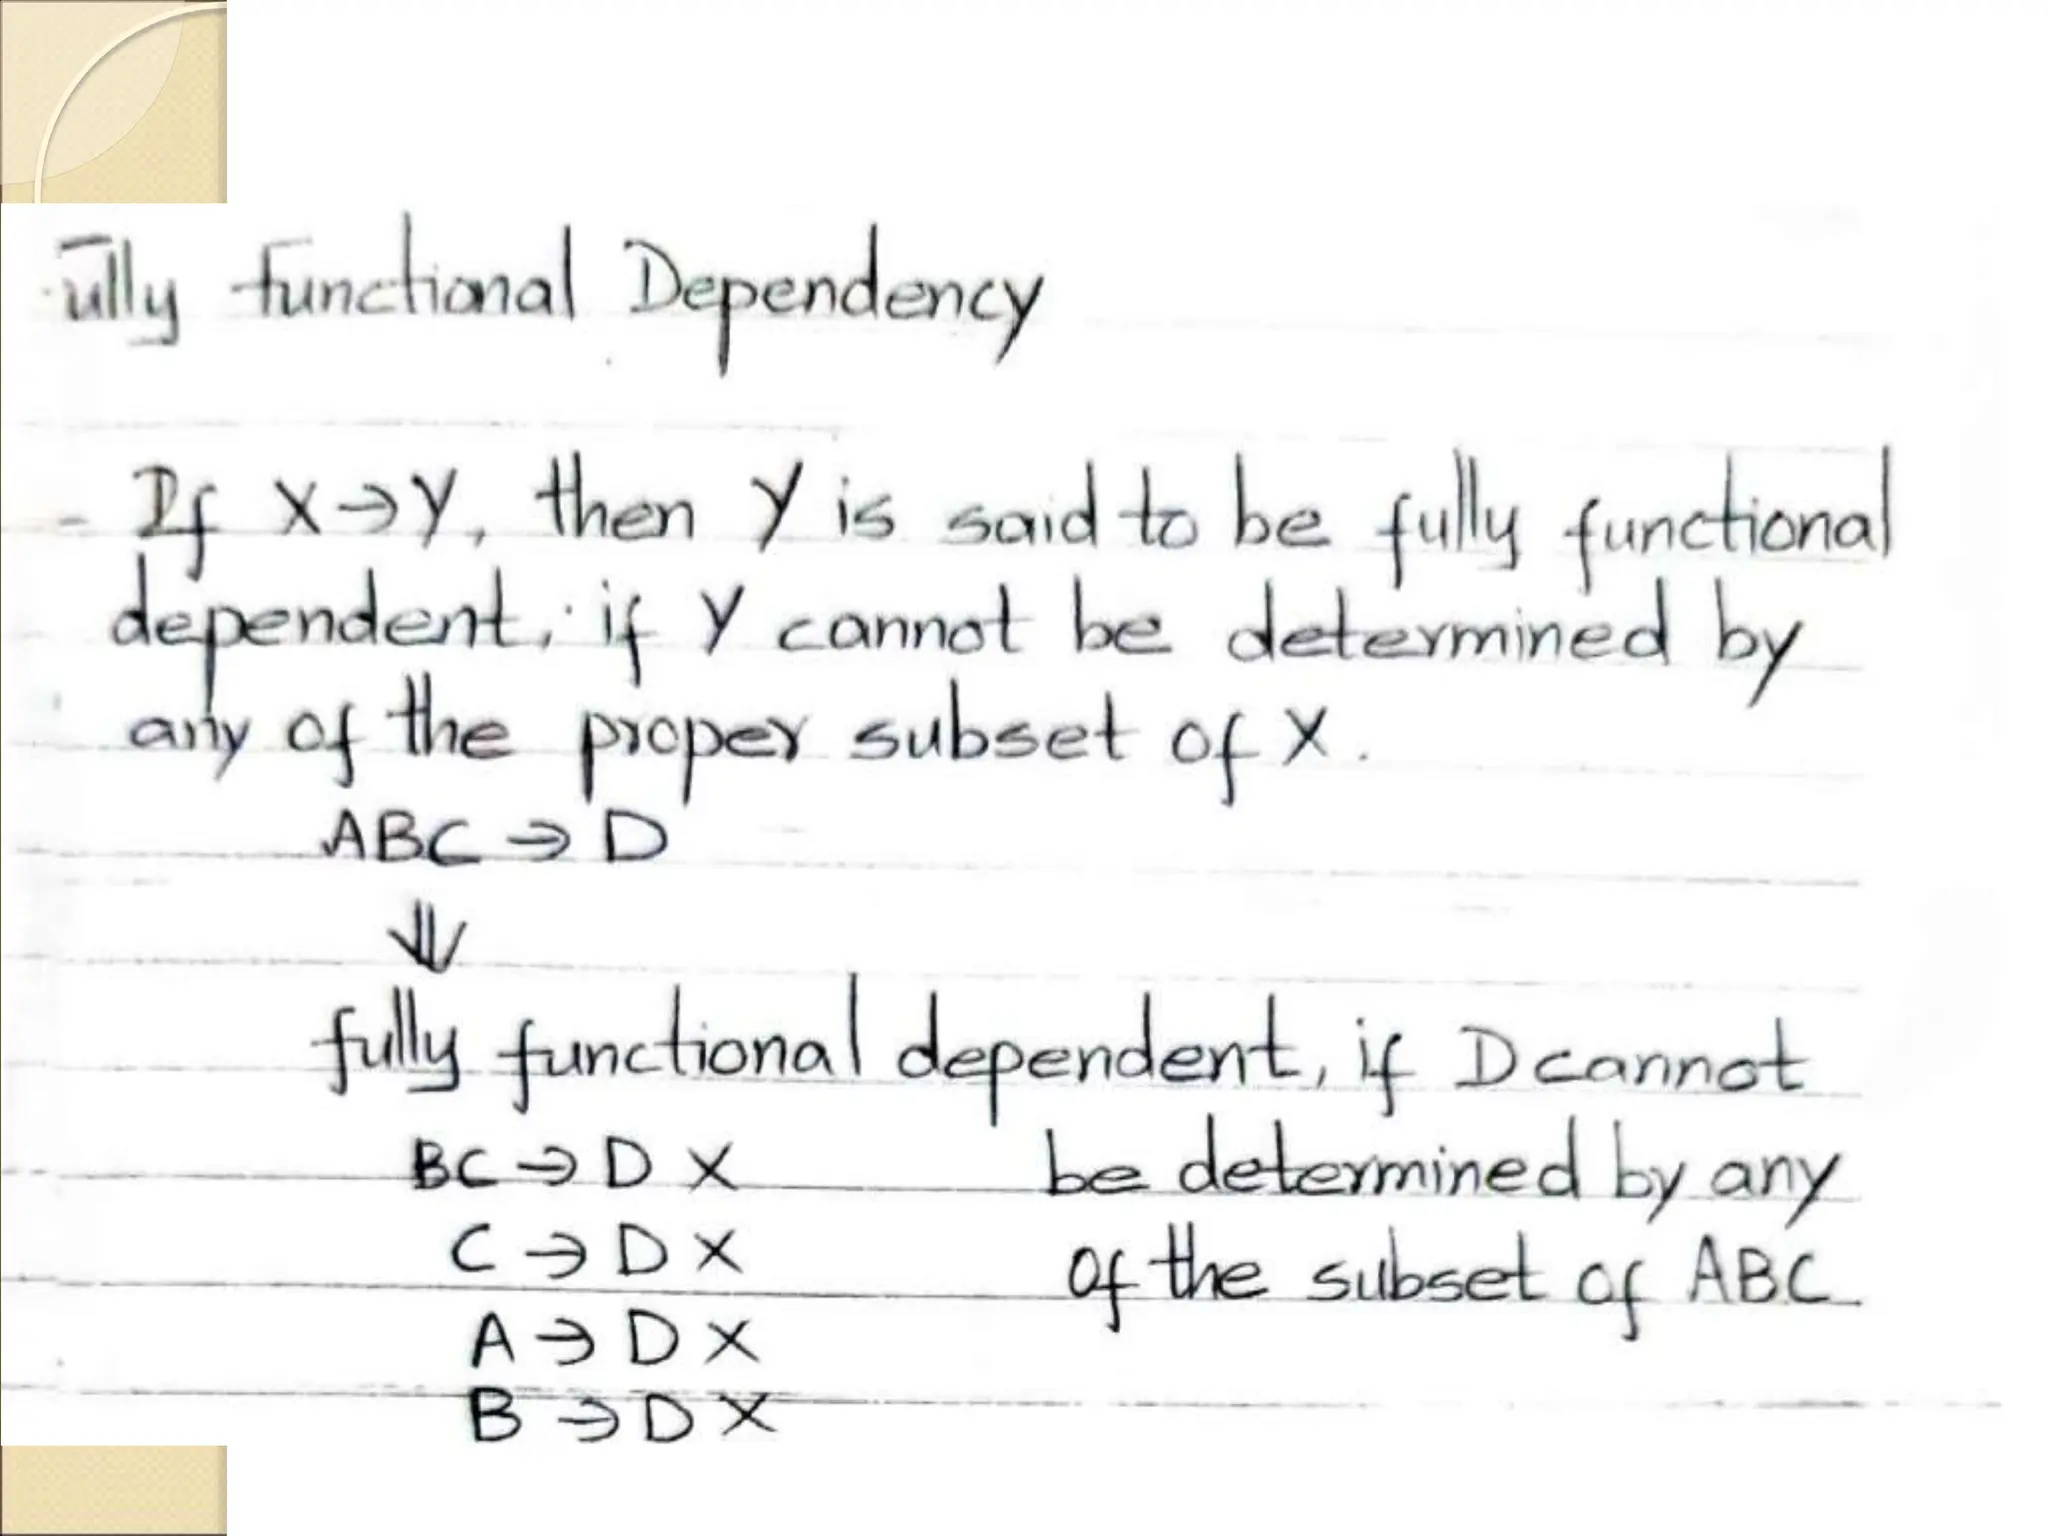 ully functional Dependency
- If X→Y, then Y is said to be fully functional
dependent, if Y cannot be determined by
any of the proper subset of X.
ABC → D
⇓
fully functional dependent, if D cannot
BC → D X be determined by any
C → D X of the subset of ABC
A → D X
B → D X